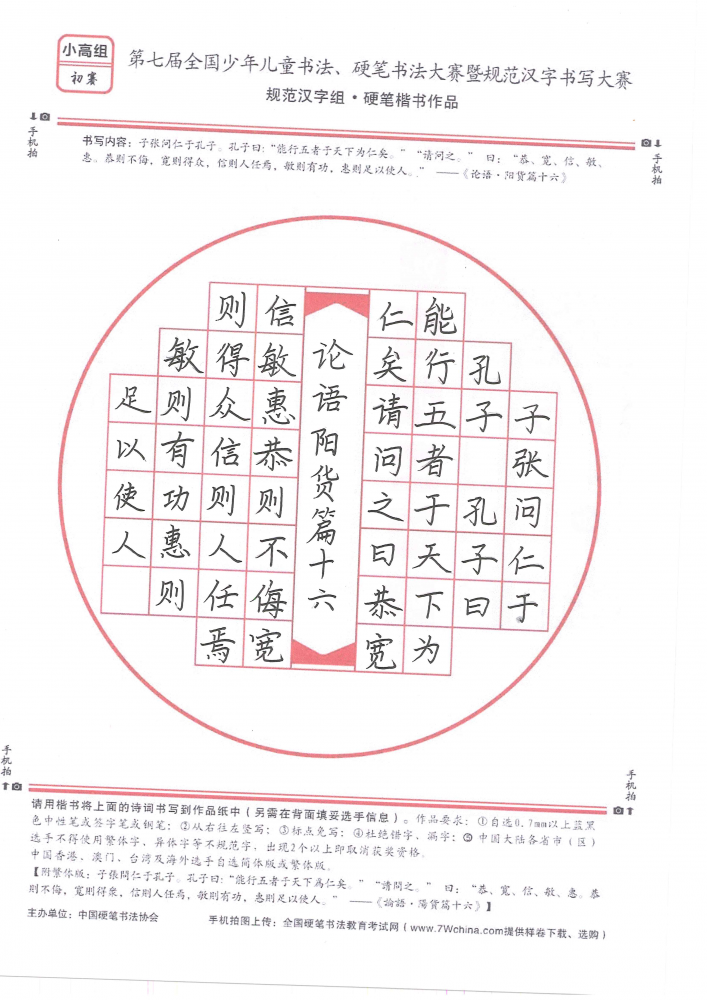 小高组
初赛
第七届全国少年儿童书法、硬笔书法大赛暨规范汉字书写大赛
规范汉字组·硬笔楷书作品
手机拍
手机拍
书写内容：子张问仁于孔子。孔子曰：“能行五者于天下为仁矣。”“请问之。”曰：“恭、宽、信、敏、
惠。恭则不侮，宽则得众，信则人任焉，敏则有功，惠则足以使人。”——《论语·阳货篇十六》
子张问仁于
孔子孔子曰
能行五者于天下为
仁矣请问之曰恭宽
论语阳货篇十六
信敏惠恭则不侮宽
则得众信则人任焉
敏则有功惠则
足以使人
手机拍
手机拍
请用楷书将上面的诗词书写到作品纸中（另需在背面填妥选手信息）。作品要求：①自选0.7mm以上蓝黑
色中性笔或签字笔或钢笔；②从右往左竖写；③标点免写；④杜绝错字、漏字；⑤中国大陆各省市（区）
选手不得使用繁体字、异体字等不规范字，出现2个以上即取消获奖资格。
中国香港、澳门、台湾及海外选手自选简体版或繁体版。
【附繁体版：子張問仁于孔子。孔子曰：“能行五者于天下為仁矣。”“請問之。”曰：“恭、寬、信、敏、惠。恭
則不侮，寬則得衆，信則人任焉，敏則有功，惠則足以使人。”——《論語·陽貨篇十六》】
主办单位：中国硬笔书法协会
手机拍图上传：全国硬笔书法教育考试网（www.7Wchina.com提供样卷下载、选购）